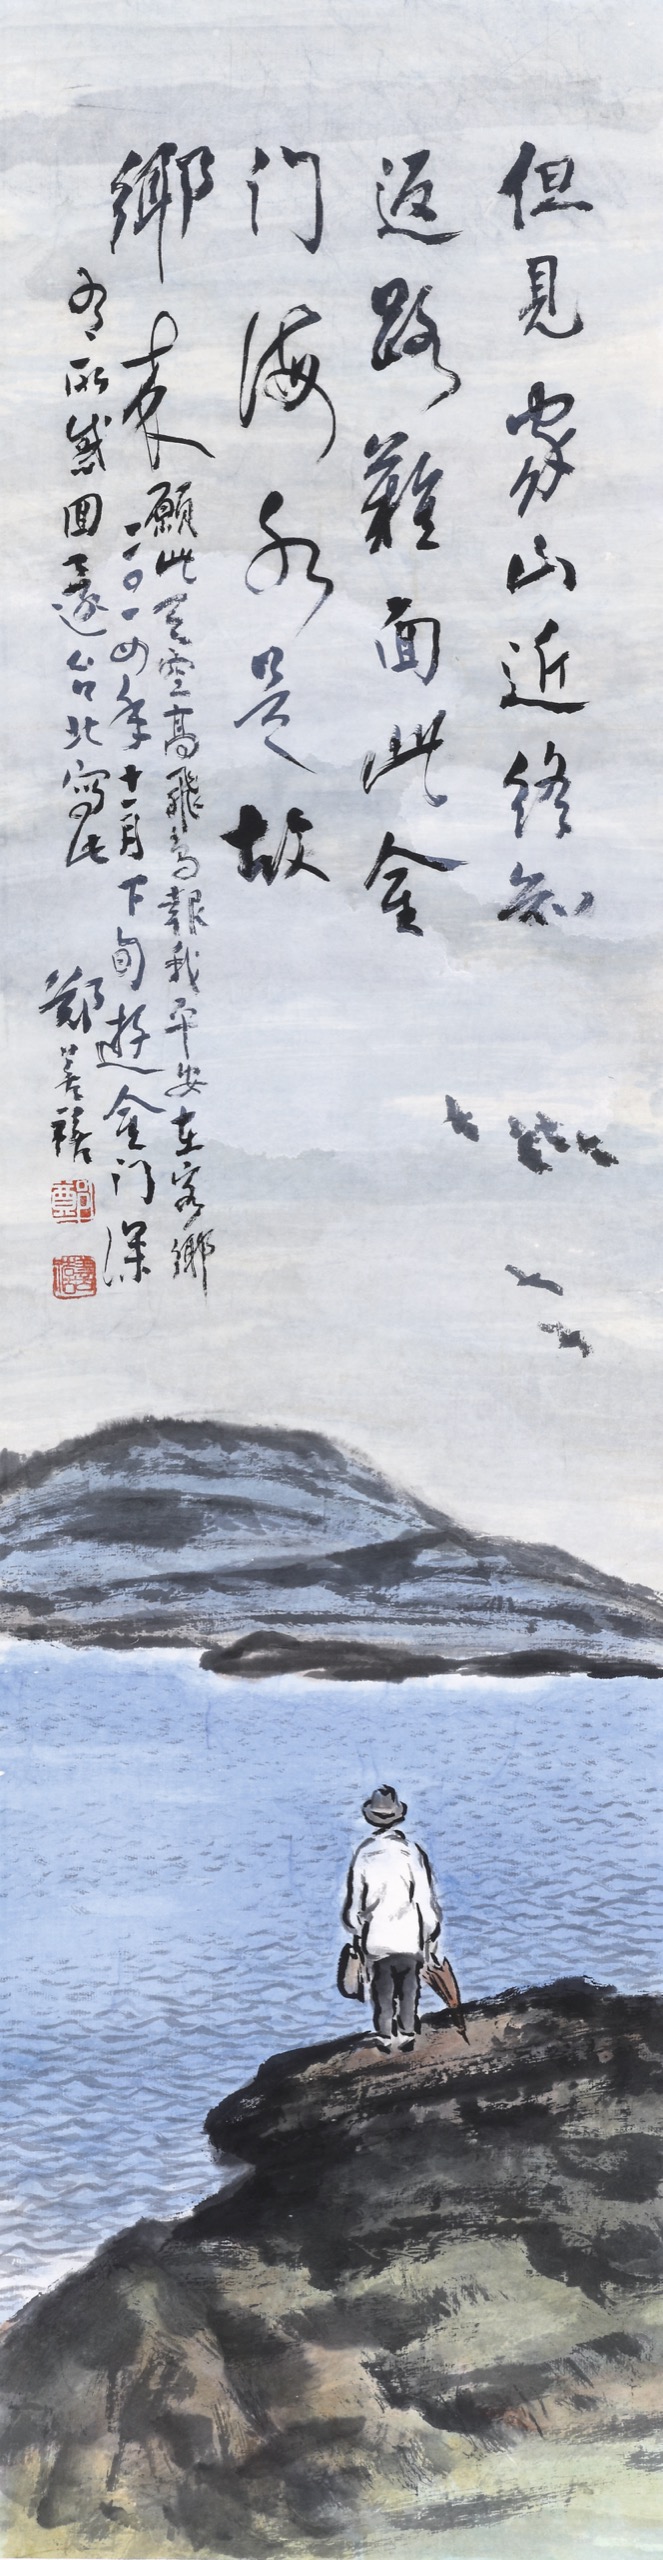 但見家山近終知
返路難面此金
门海水是故
鄉来願此天空高飛鳥報我平安在客鄉
二〇一四年十一月下旬遊金门深
有所感回台北寫此 鄭善禧